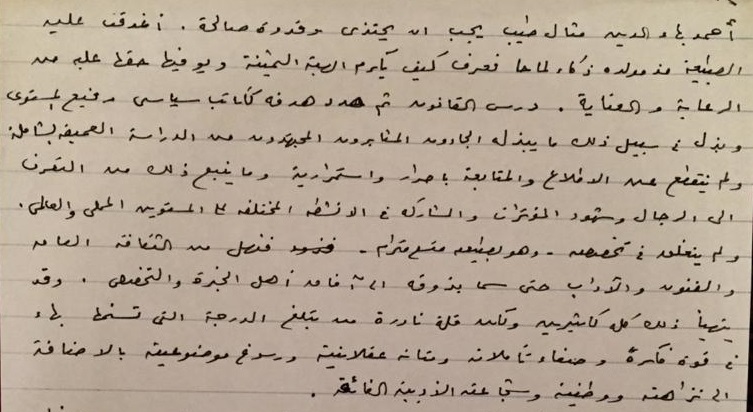 أحمد بهاء الدين مثال طيب يجب ان يحتذى وقدوة صالحة. أغدقت عليه
الطبيعة منذ مولده ذكاء لماحا فعرف كيف يكرم الهبة الثمينة ويوفيها حقها عليه من
الرعاية والعناية. درس القانون ثم حدد هدفه ككاتب سياسى رفيع المستوى
وبذل فى سبيل ذلك ما يبذله الجادون المثابرون المجتهدون من الدراسة العميقة الشاملة
ولم ينقطع عن الاطلاع والمتابعة باصرار واستمرارية وما يتبع ذلك من التعرف
الى الرجال وشهود المؤتمرات والمشاركة فى الانشطة المختلفة على المستويين المحلى والعالمى.
ولم ينغلق فى تخصصه - وهو بطبيعته متسع مترام - فنهل من الثقافة العامة
والفنون والآداب حتى سما بذوقه الى آفاق أهل الخبرة والتخصص. وقد
يتهيأ ذلك كله لكثيرين ولكن قلة نادرة من تبلغ الدرجة التى تسنمها بهاء
فى قوة فكره وصفاء تأملاته ومتانة عقلانيته ورسوخ موضوعيته بالاضافة
الى نزاهته ووطنيته وشجاعته الأدبية الفائقة.